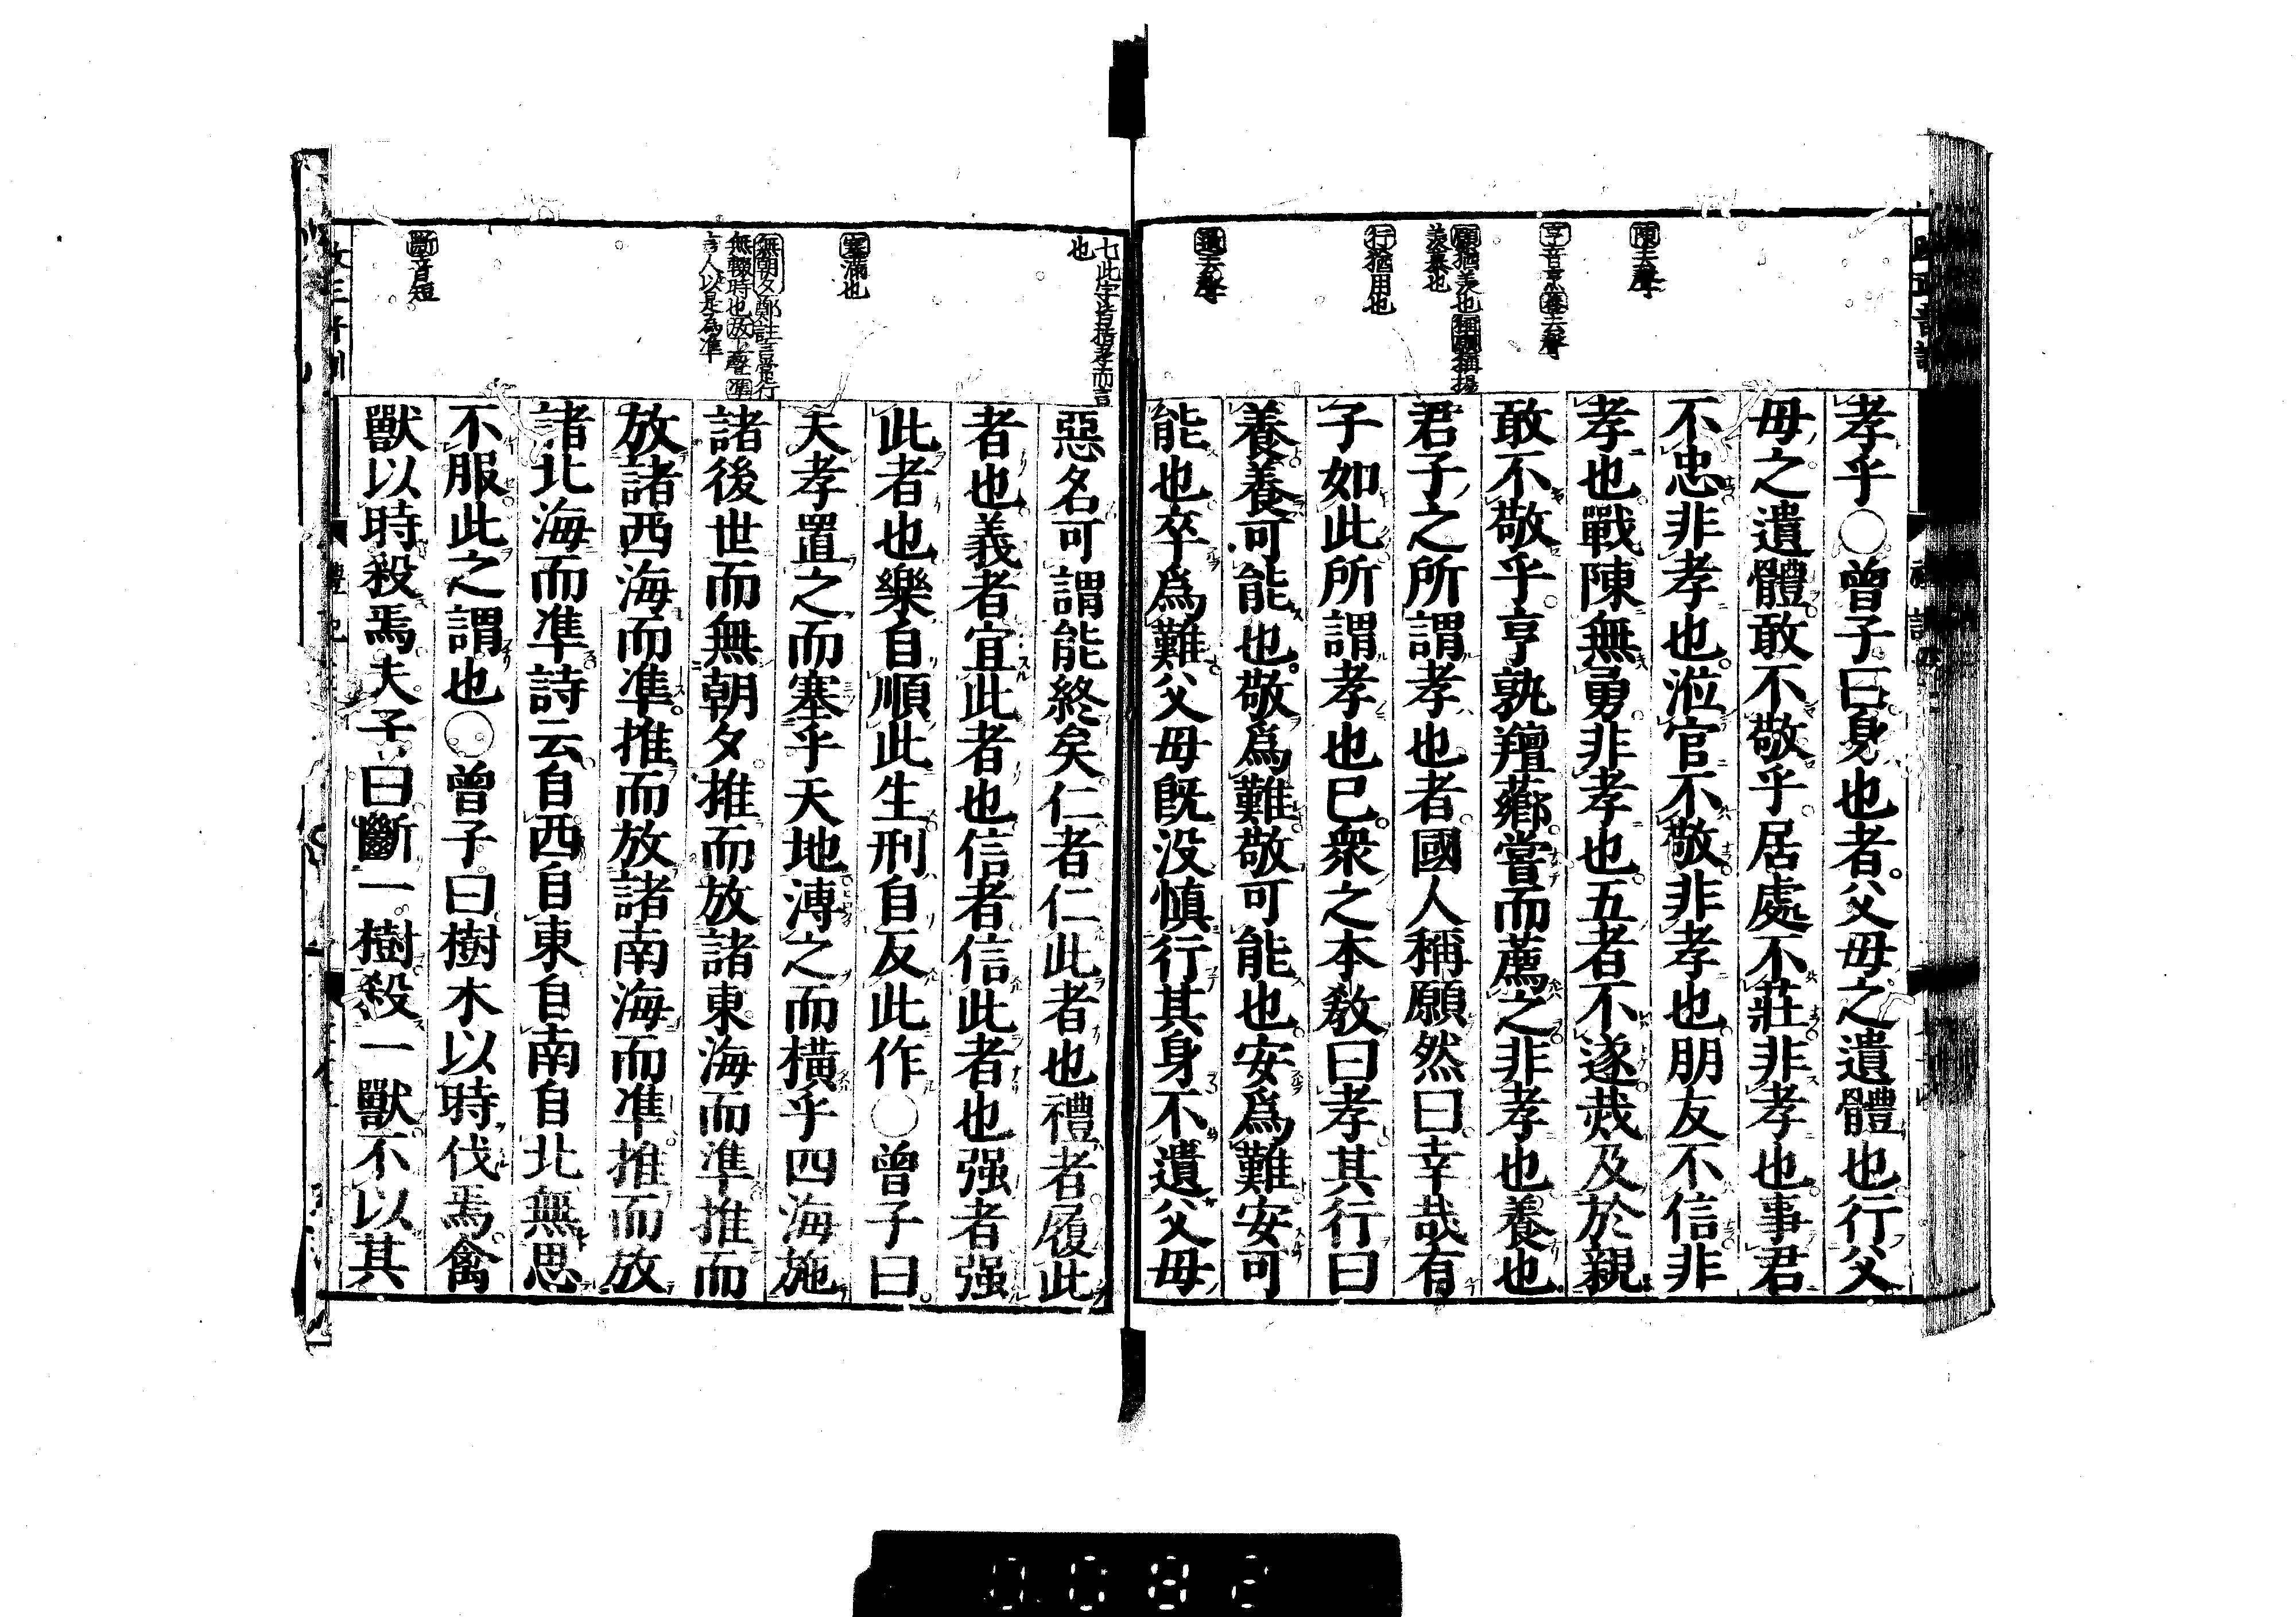 陳去聲
亨音烹養去聲
願猶羨也稱願稱揚
羨慕也
行猶用也
遺去聲
孝乎○曾子曰身也者父母之遺體也行父
母之遺體敢不敬乎居處不莊非孝也事君
不忠非孝也涖官不敬非孝也朋友不信非
孝也戰陳無勇非孝也五者不遂烖及於親
敢不敬乎亨孰羶薌嘗而薦之非孝也養也
君子之所謂孝也者國人稱願然曰幸哉有
子如此所謂孝也已衆之本敎曰孝其行曰
養養可能也敬爲難敬可能也安爲難安可
能也卒爲難父母既没慎行其身不遺父母
七此字皆指孝而言
也
塞滿也
無朝夕鄭註言常行
無輟時也放上聲準
言人以是為準
斷音短
惡名可謂能終矣仁者仁此者也禮者履此
者也義者宜此者也信者信此者也强者强
此者也樂自順此生刑自反此作○曾子曰
夫孝置之而塞乎天地溥之而橫乎四海施
諸後世而無朝夕推而放諸東海而準推而
放諸西海而準推而放諸南海而準推而放
諸北海而準詩云自西自東自南自北無思
不服此之謂也○曾子曰樹木以時伐焉禽
獸以時殺焉夫子曰斷一樹殺一獸不以其